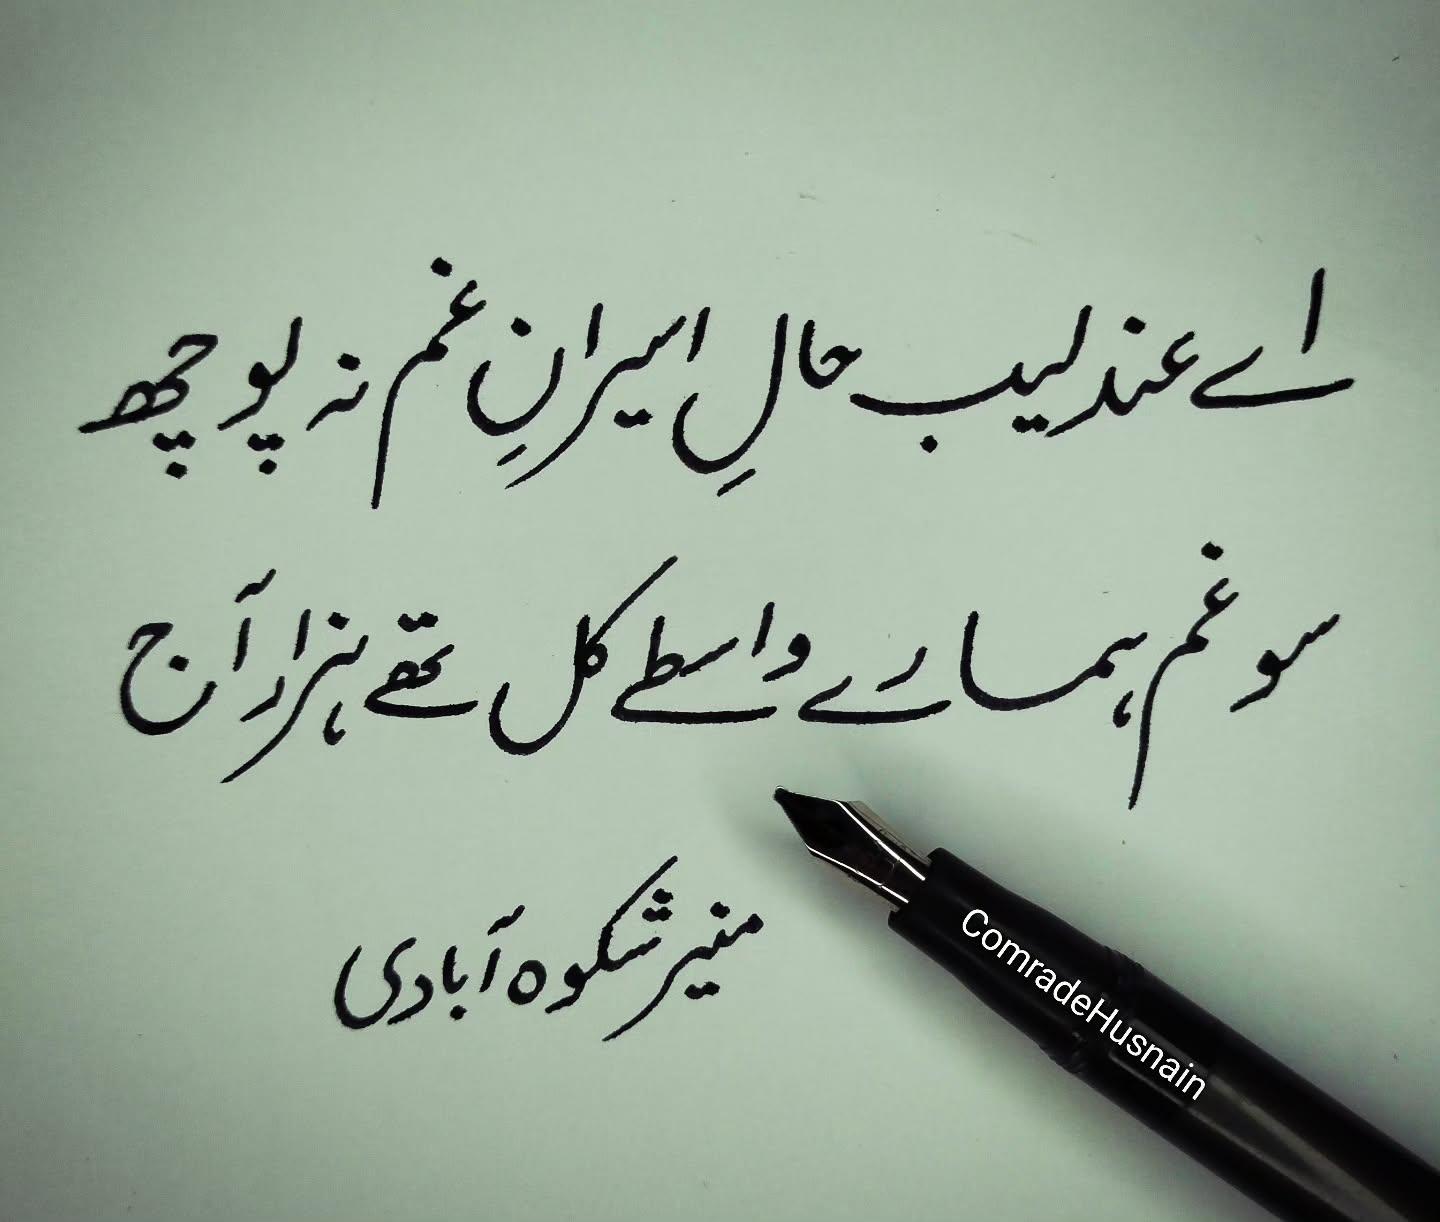 اے عندلیب حالِ اسیرانِ غم نہ پوچھ
سو غم ہمارے واسطے کل تھے ہزار آج
منیر شکوہ آبادی
ComradeHusnain